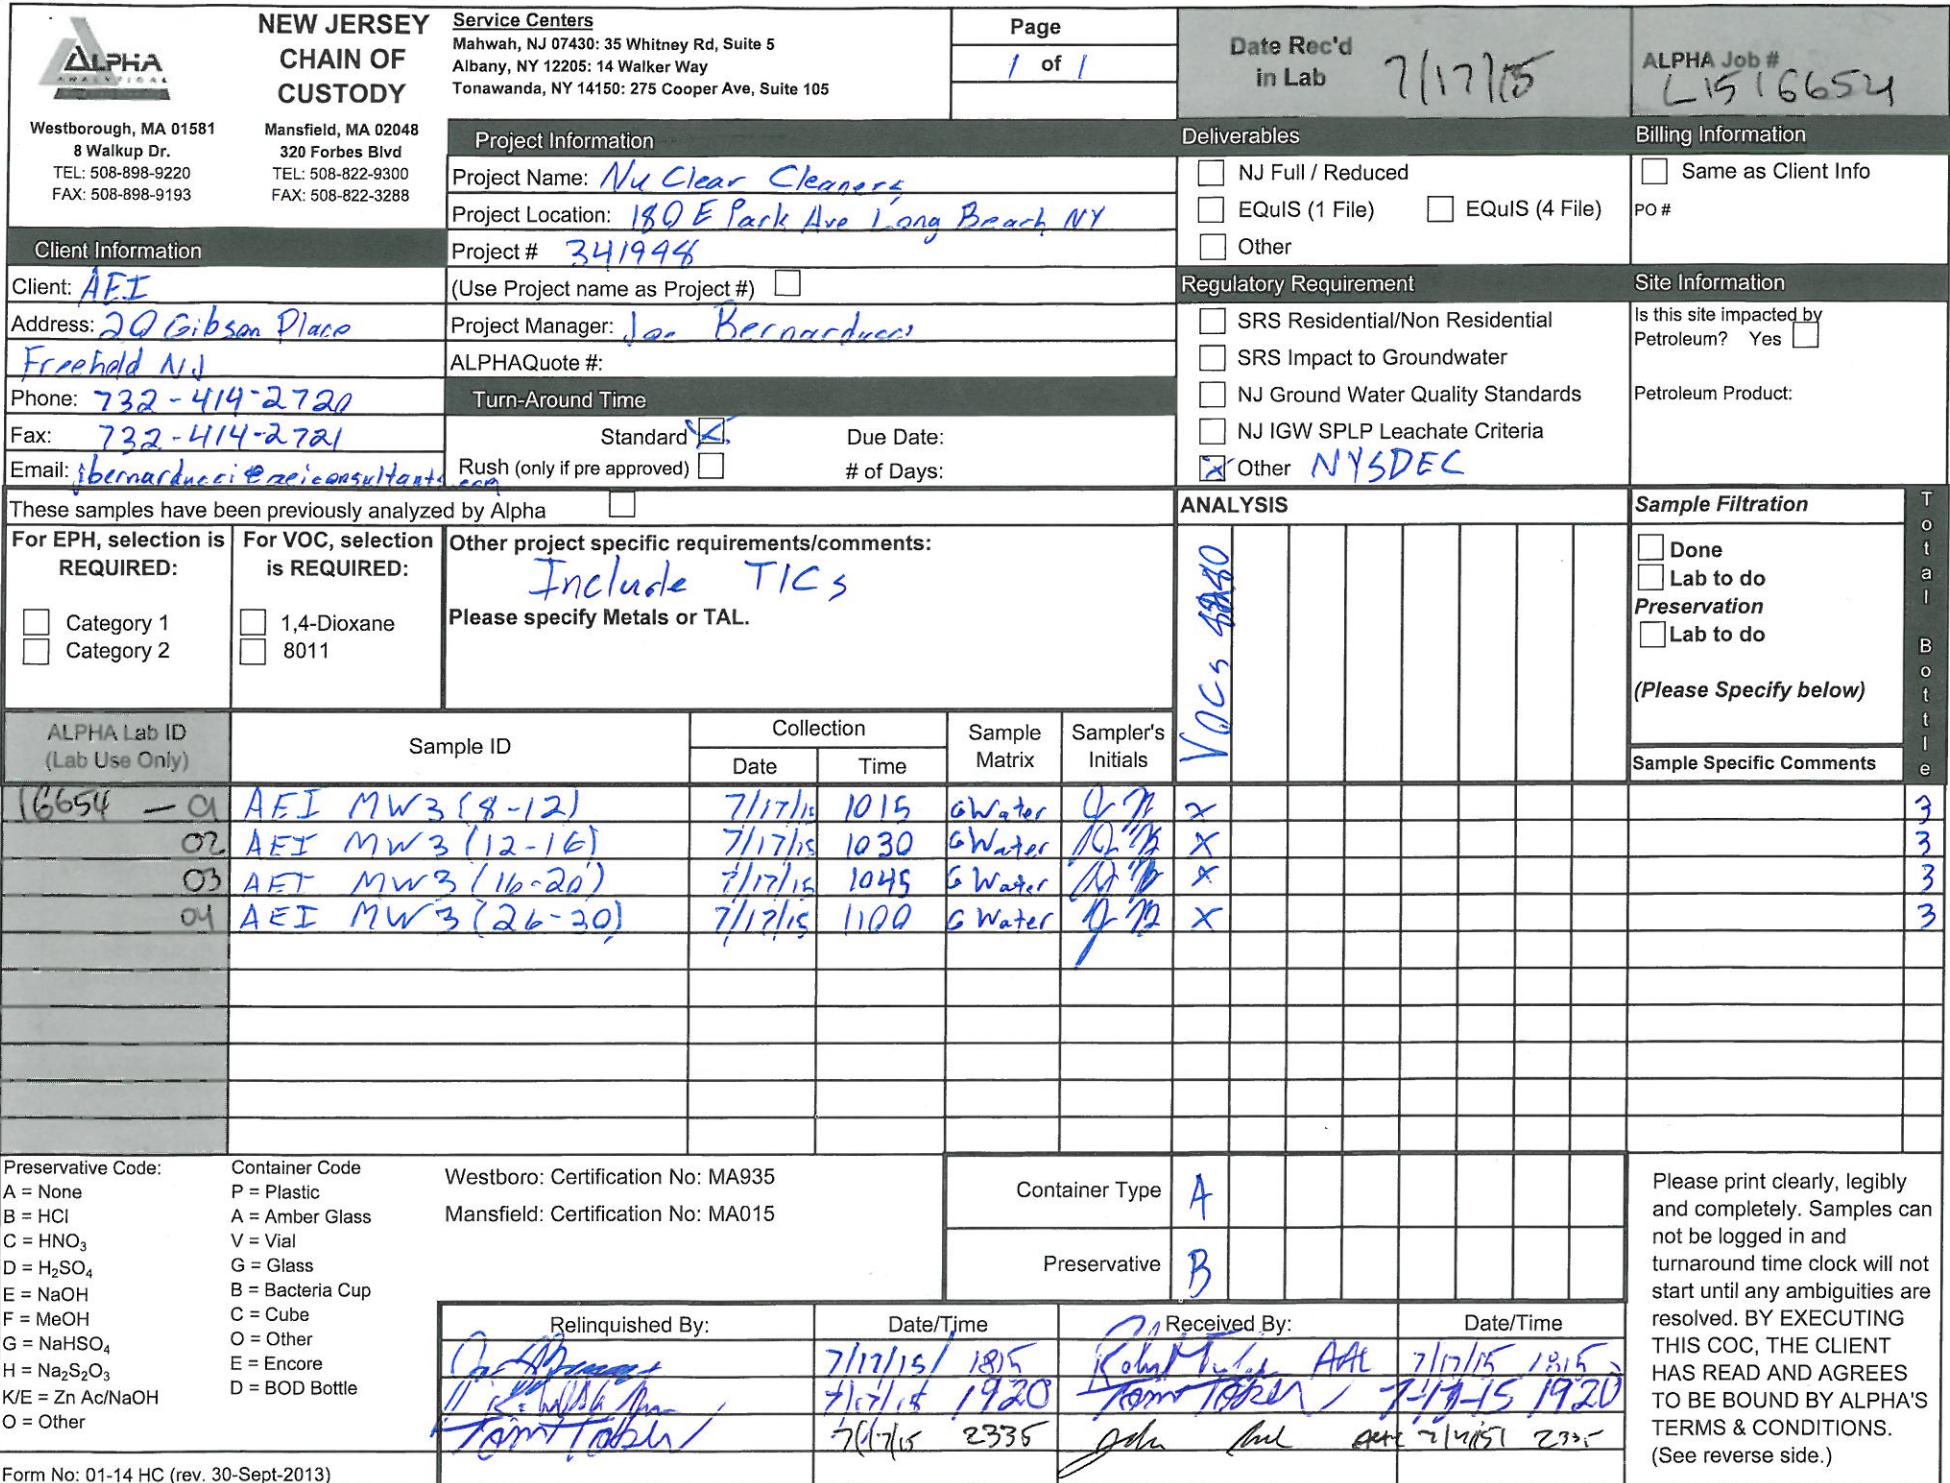 ALPHA
ANALYTICAL
NEW JERSEY
CHAIN OF
CUSTODY
Westborough, MA 01581
8 Walkup Dr.
TEL: 508-898-9220
FAX: 508-898-9193
Mansfield, MA 02048
320 Forbes Blvd
TEL: 508-822-9300
FAX: 508-822-3288
Service Centers
Mahwah, NJ 07430: 35 Whitney Rd, Suite 5
Albany, NY 12205: 14 Walker Way
Tonawanda, NY 14150: 275 Cooper Ave, Suite 105
Page
1 of 1
Date Rec'd
in Lab 7/17/15
ALPHA Job #
L1516654
Client Information
Client: AEI
Address: 20 Gibson Place
Freehold NJ
Phone: 732-414-2720
Fax: 732-414-2721
Email: jbernarducci@aeiconsultants.com
Project Information
Project Name: Nu Clear Cleaners
Project Location: 180 E Park Ave Long Beach NY
Project # 341948
(Use Project name as Project #)
Project Manager: Joe Bernarducci
ALPHAQuote #:
Turn-Around Time
Standard X Due Date:
Rush (only if pre approved) # of Days:
Deliverables
NJ Full / Reduced
EQuIS (1 File) EQuIS (4 File)
Other
Regulatory Requirement
SRS Residential/Non Residential
SRS Impact to Groundwater
NJ Ground Water Quality Standards
NJ IGW SPLP Leachate Criteria
X Other NYSDEC
Billing Information
Same as Client Info
PO #
Site Information
Is this site impacted by
Petroleum? Yes
Petroleum Product:
These samples have been previously analyzed by Alpha
For EPH, selection is
REQUIRED:
Category 1
Category 2
For VOC, selection
is REQUIRED:
1,4-Dioxane
8011
Other project specific requirements/comments:
Include TICs
Please specify Metals or TAL.
ANALYSIS
VOCs
Sample Filtration
Done
Lab to do
Preservation
Lab to do
(Please Specify below)
Total Bottle
ALPHA Lab ID
(Lab Use Only)
Sample ID
Collection
Date Time
Sample
Matrix
Sampler's
Initials
Sample Specific Comments
16654 - 01 AEI MW3 (8-12) 7/17/15 1015 GWater X 3
02 AEI MW3 (12-16) 7/17/15 1030 GWater X 3
03 AEI MW3 (16-20) 7/17/15 1045 GWater X 3
04 AEI MW3 (26-30) 7/17/15 1100 GWater X 3
Preservative Code:
A = None
B = HCl
C = HNO₃
D = H₂SO₄
E = NaOH
F = MeOH
G = NaHSO₄
H = Na₂S₂O₃
K/E = Zn Ac/NaOH
O = Other
Container Code
P = Plastic
A = Amber Glass
V = Vial
G = Glass
B = Bacteria Cup
C = Cube
O = Other
E = Encore
D = BOD Bottle
Westboro: Certification No: MA935
Mansfield: Certification No: MA015
Container Type A
Preservative B
Relinquished By: Date/Time Received By: Date/Time
7/17/15 1815 AAL 7/17/15 1815
7/17/15 1920 Tom Tober 7-17-15 1920
Tom Tober 7/17/15 2335 2335
Please print clearly, legibly
and completely. Samples can
not be logged in and
turnaround time clock will not
start until any ambiguities are
resolved. BY EXECUTING
THIS COC, THE CLIENT
HAS READ AND AGREES
TO BE BOUND BY ALPHA'S
TERMS & CONDITIONS.
(See reverse side.)
Form No: 01-14 HC (rev. 30-Sept-2013)